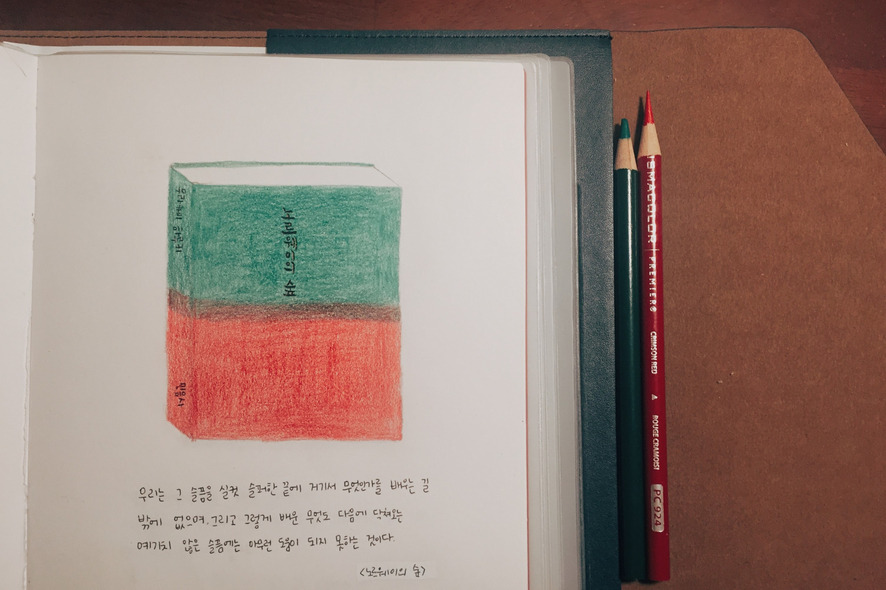 무라카미 하루키
노르웨이의 숲
민음사
우리는 그 슬픔을 실컷 슬퍼한 끝에 거기서 무엇인가를 배우는 길
밖에 없으며, 그리고 그렇게 배운 무엇도 다음에 닥쳐오는
예기치 않은 슬픔에는 아무런 도움이 되지 못하는 것이다.
<노르웨이의 숲>
ISMACOLOR PREMIER® CRIMSON RED ROUGE CRAMOISI PC 924